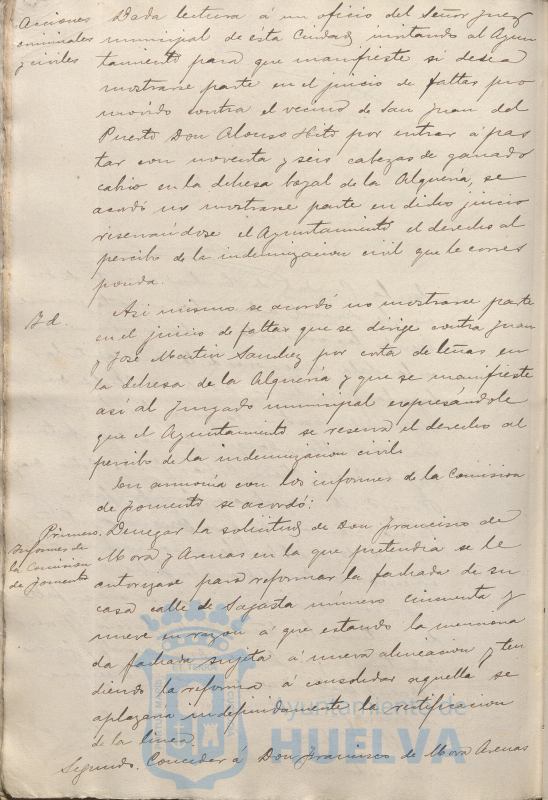 Acciones
criminales
y civiles
Dada lectura á un oficio del Señor Juez
municipal de ésta Ciudad invitando al Ayun
tamiento para que manifieste si desea
mostrarse parte en el juicio de faltas pro
movido contra el vecino de San Juan del
Puerto Don Alonso Hito por entrar á pas
tar con noventa y seis cabezas de ganado
cabrio en la dehesa boyal de la Alquería, se
acordó no mostrarse parte en dicho juicio
reservandose el Ayuntamiento el derecho al
percibo de la indemnizacion civil que le corres
ponda.
Id.
Asi mismo se acordó no mostrarse parte
en el juicio de faltas que se dirige contra Juan
y José Martin Sanchez por corta de leñas en
la dehesa de la Alquería y que se manifieste
así al Juzgado municipal expresándole
que el Ayuntamiento se reserva el derecho al
percibo de la indemnizacion civil.
En armonia con los informes de la Comision
de Fomento se acordó:
Informes de
la Comision
de Fomento
Primero. Denegar la solicitud de Don Francisco de
Mora y Arenas en la que pretendia se le
autorizase para reformar la fachada de su
casa calle de Sagasta número cincuenta y
nueve en razon á que estando la menciona
da fachada sujeta á nueva alineacion y ten
diendo la reforma á consolidar aquella se
aplazaria indefinidamente la rectificacion
de la linea.
Segundo. Conceder á Don Francisco de Mora Arenas
Ayuntamiento de
HUELVA